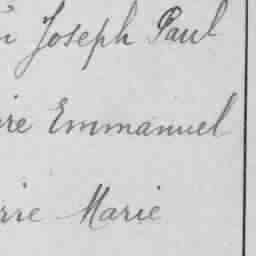 Joseph Paul
Emmanuel
Marie